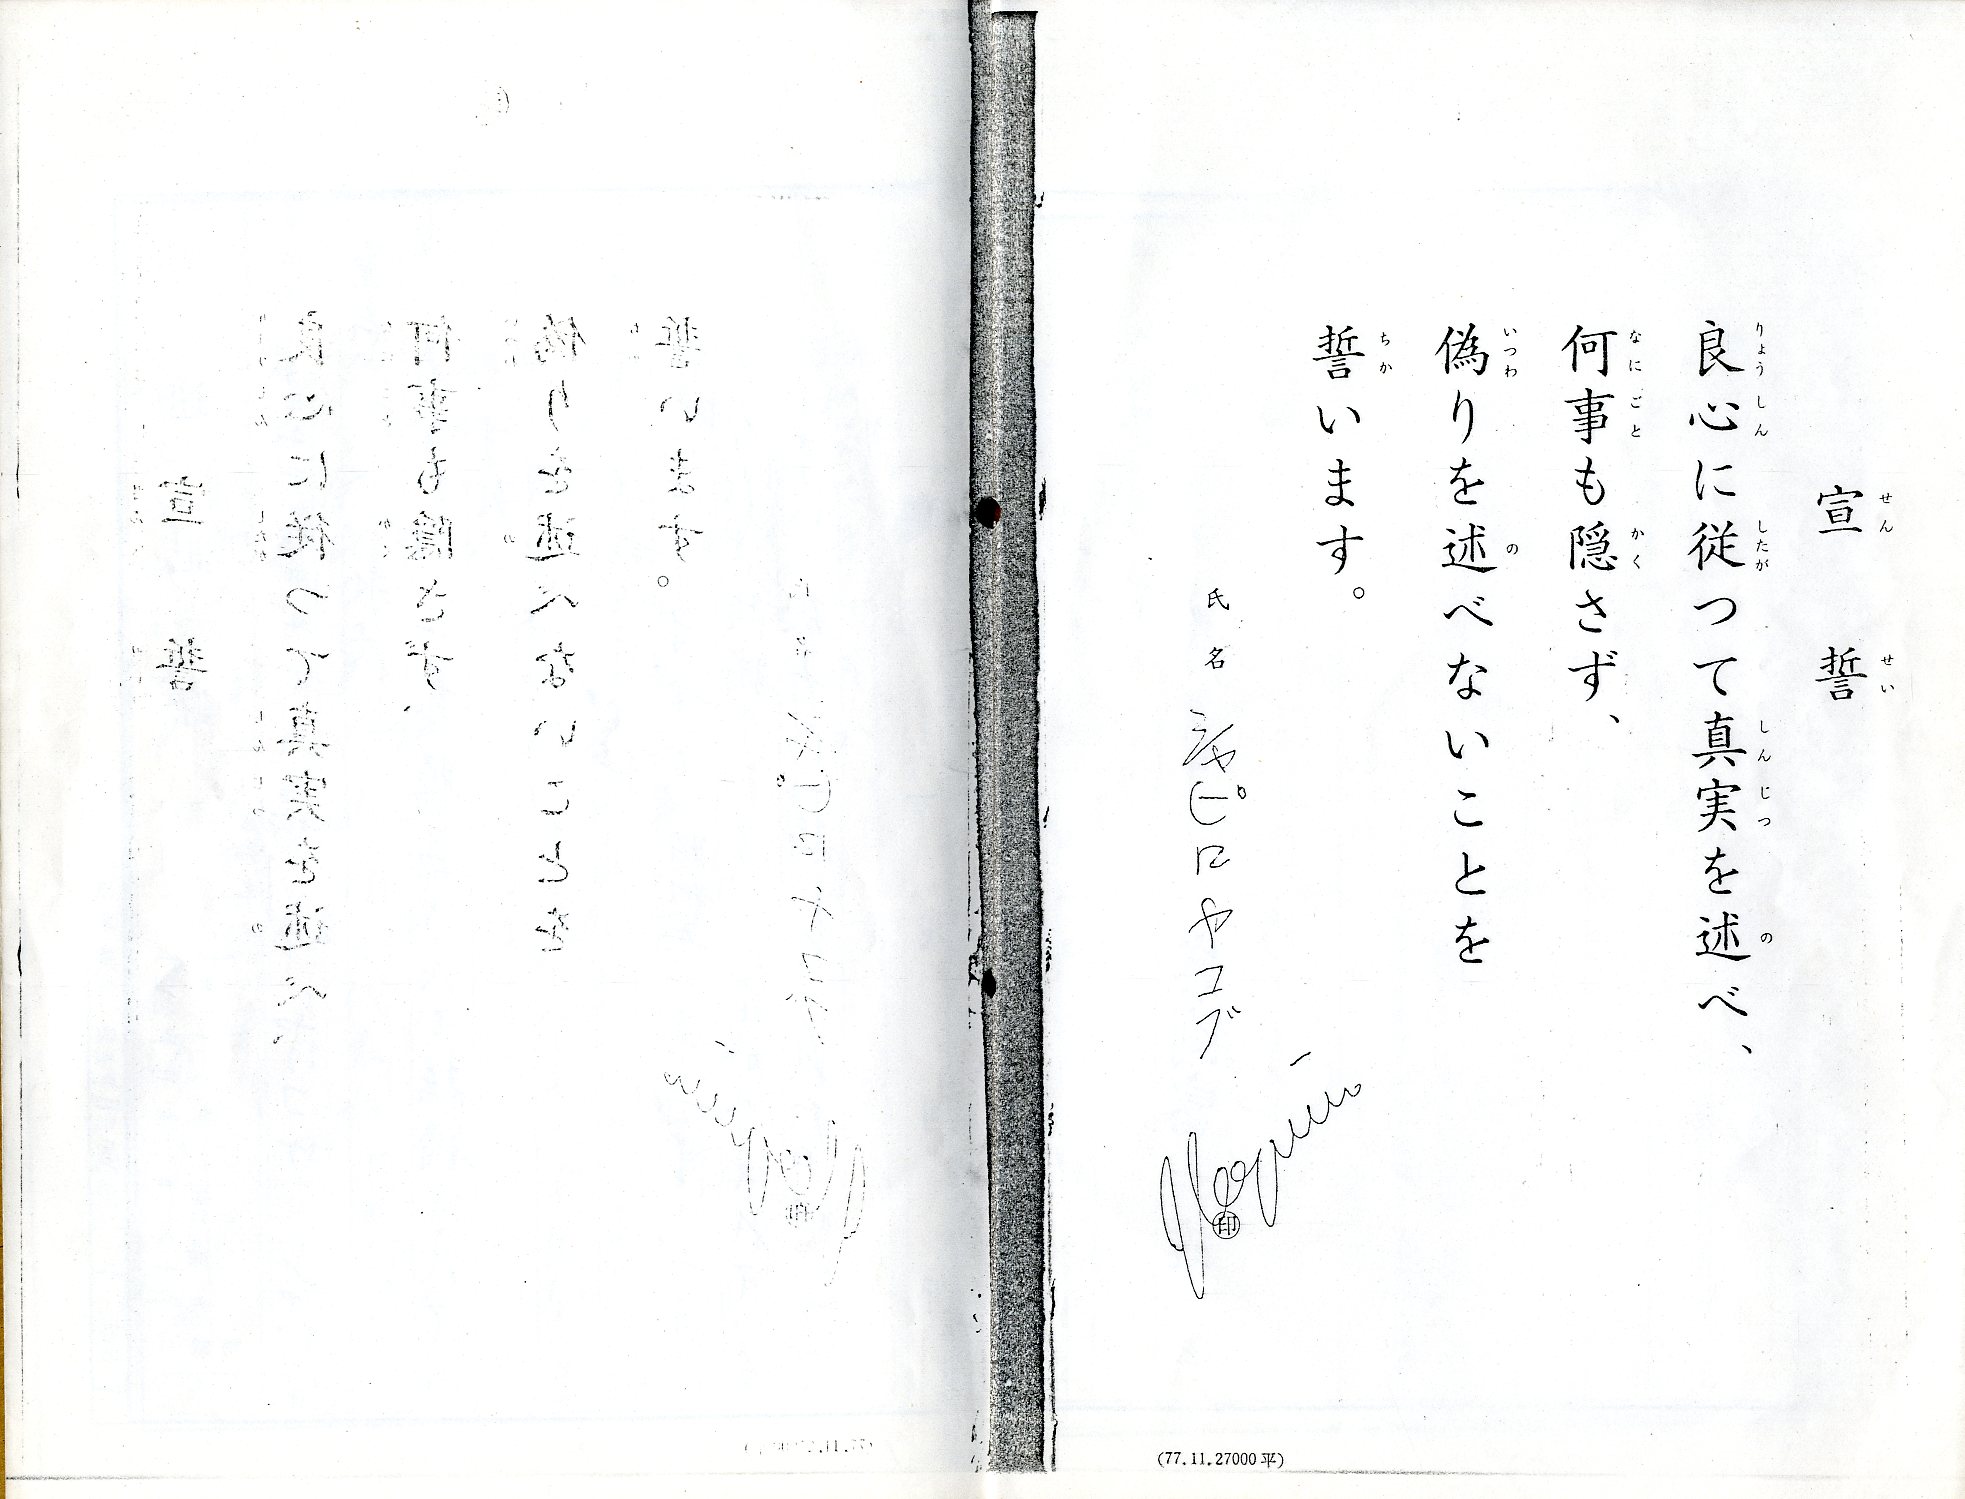 宣誓
良心に従つて真実を述べ、
何事も隠さず、
偽りを述べないことを
誓います。
氏名 シャピロヤコブ
印
(77.11.27000平)